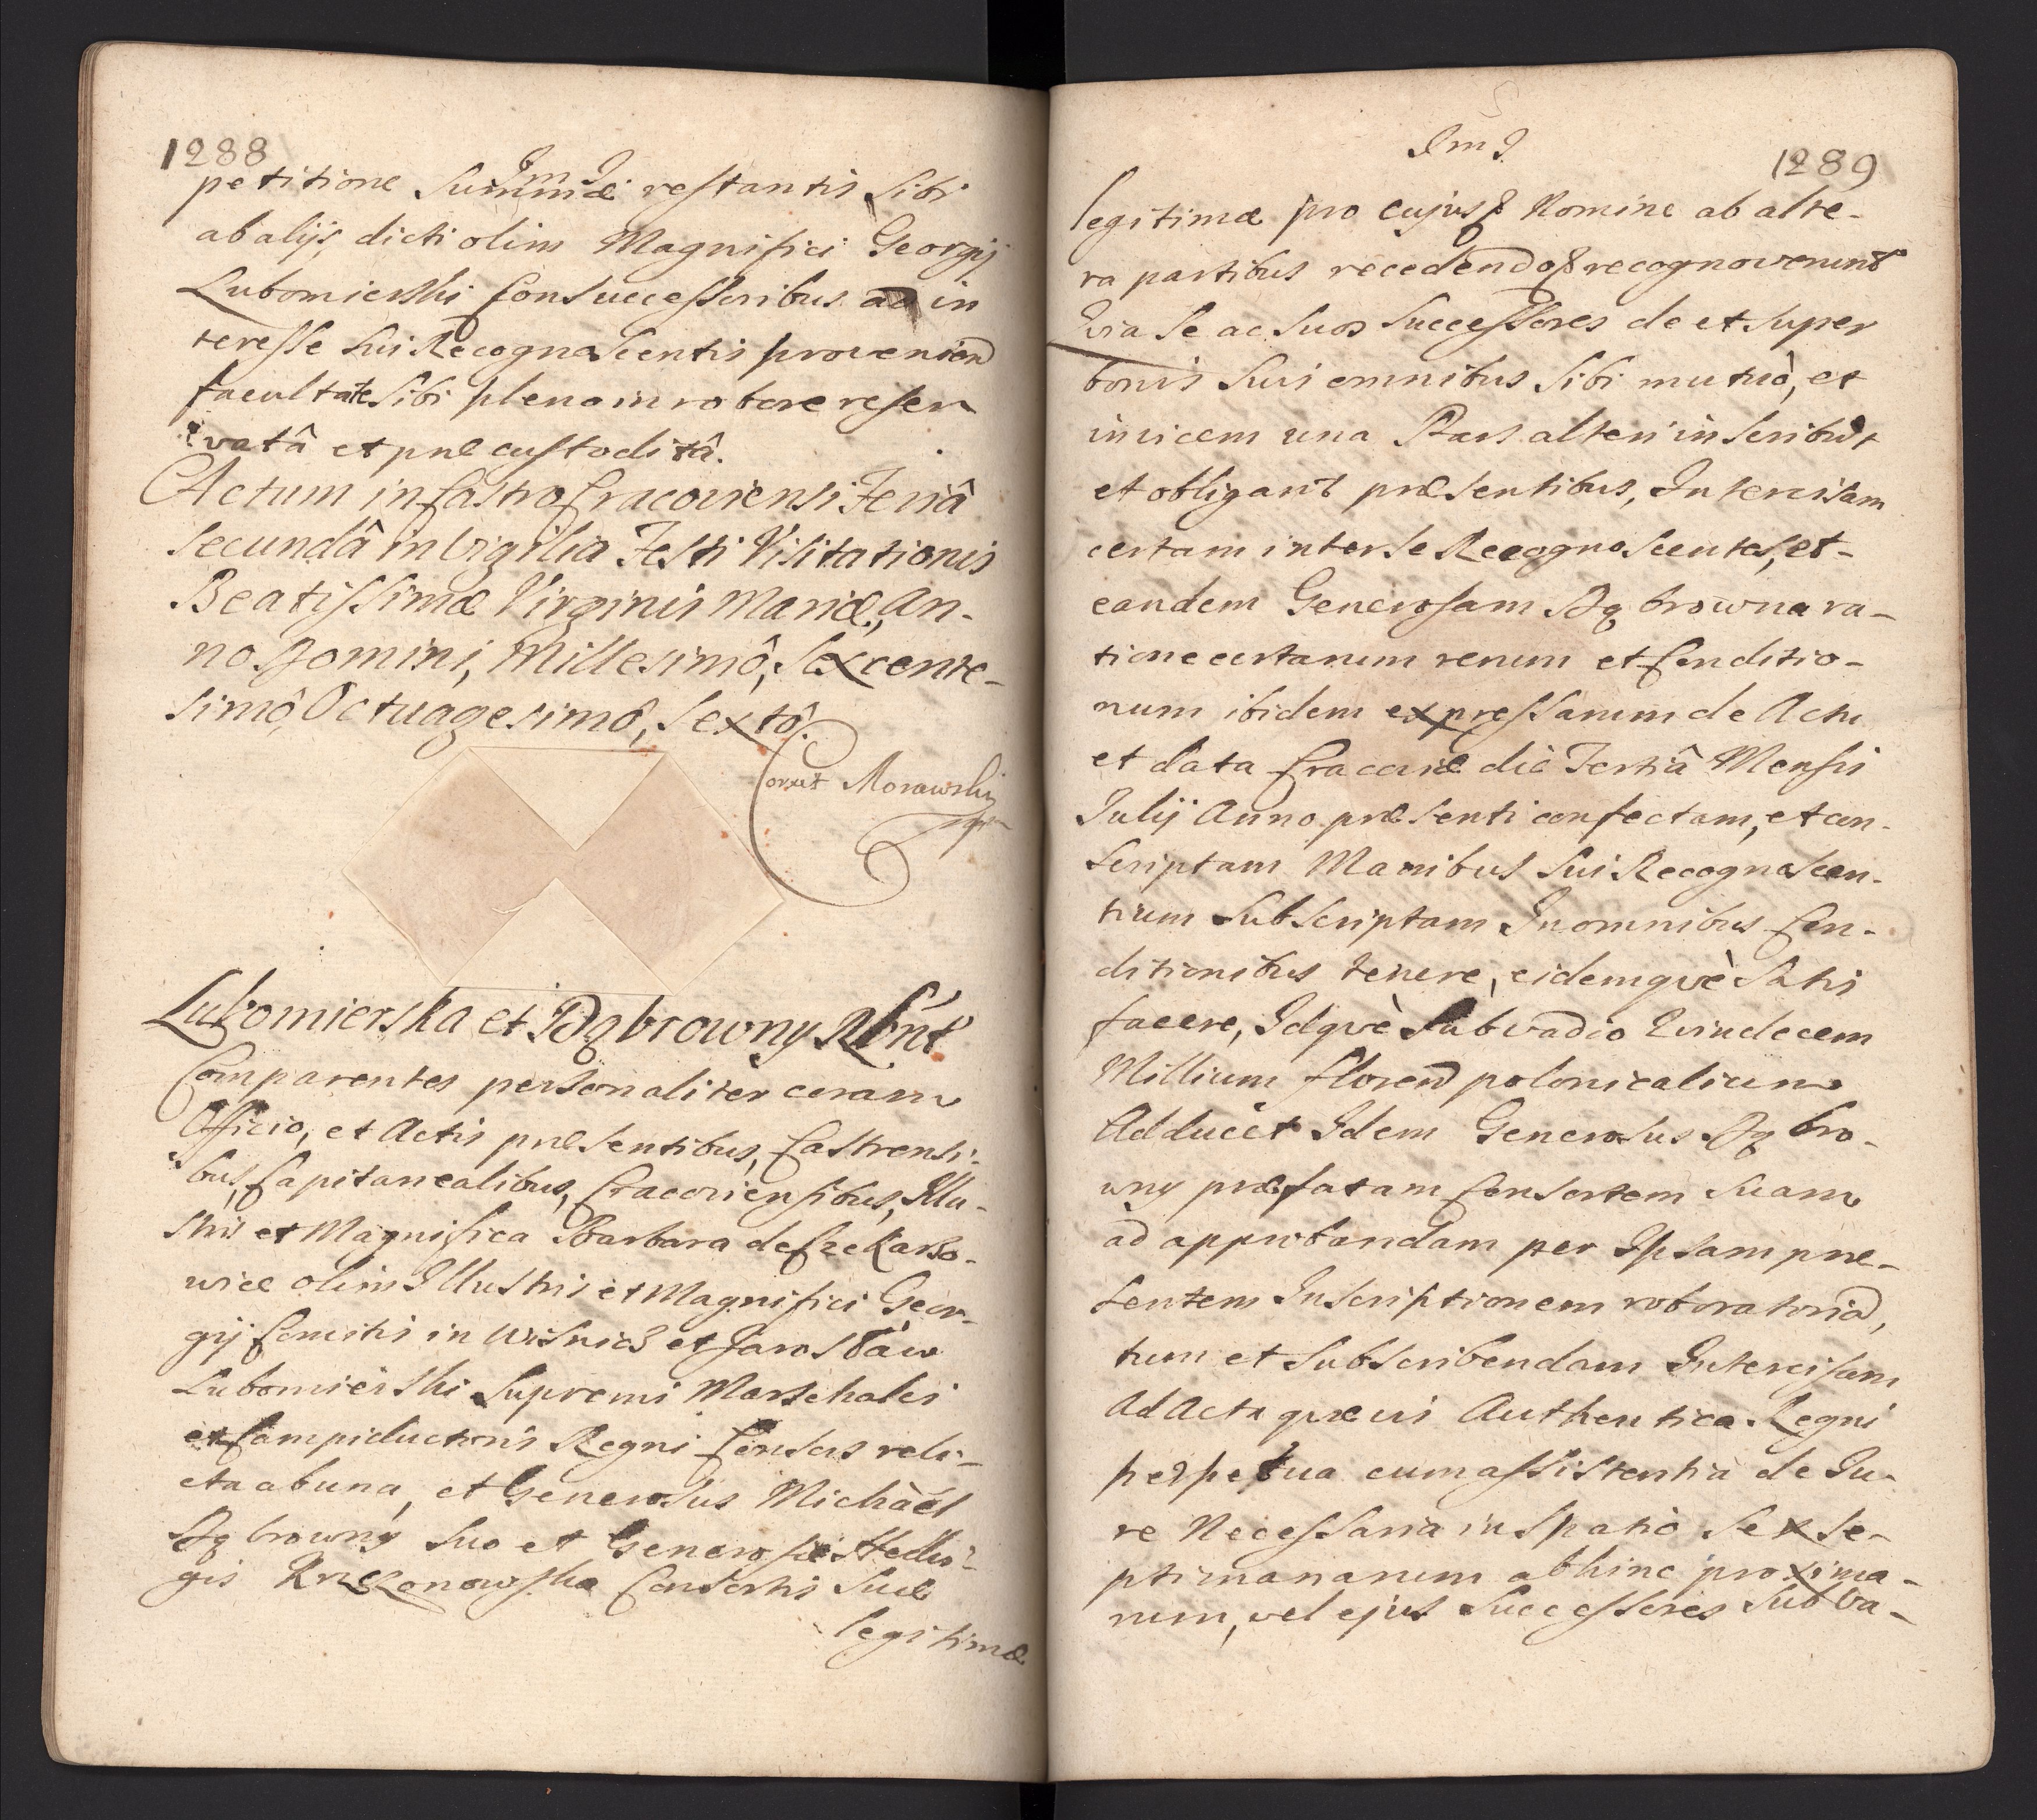 1288
petitione Summæ restantis Sibi
ab alijs dicti olim Magnifici Georgij
Lubomierski Consuccessoribus ad in
teresse Sui Recognoscentis proveniend
facultate Sibi pleno in robore reser
vatâ et præcustoditâ.
Actum in Castro Cracoviensi Feriâ
Secundâ in Vigilia Festi Visitationis
Beatissimæ Virginis Mariæ, An-
no Domini, Millesimô, Sexcente-
simô, Octuagesimô, Sextô.
Corrxt Morawski
Lubomierska et Dąbrowny Rbnt
Comparentes personaliter coram
Officio, et Actis præsentibus, Castrensi-
bus, Capitanealibus, Cracoviensibus, Illu-
stris et Magnifica Barbara de
wice olim Illustris et Magnifici Geor-
gij Comitis in Wisnicz et Jarosław
Lubomierski Supremi Marschalci
et Campiductoris Regni Consors reli-
cta ab una, et Generosus Michaël
Dąbrowny Suo et Generosæ Hedvi-
gis Consortis Suæ
legitimæ
1289
legitimæ pro cujusq Nomine ab alte-
ra partibus recedendo recognoverunt
Quia Se ac Suos Successores de et Super
bonis Suis omnibus Sibi mutuò, et
invicem una Pars alteri inscribunt
et obligant præsentibus, Intercisam
certam inter Se Recognoscentes, et-
eandem Generosam Dąbrowna ra-
tione certarum rerum et Conditio-
num ibidem expressarum de Actu
et data Cracoviæ diè Tertiâ Mensis
Julij Anno præsenti confectam, et con-
scriptam Manibus Sui Recognoscen-
tium Subscriptam In omnibus Con-
ditionibus tenere, eidemquè Satis
facere, Idquè Sub vadio Quindecem
Millium floren polonicalium
Adducet Idem Generosus Dąbro-
wny præfatam Consortem Suam
ad approbandam per Ipsam præ-
sentem Inscriptionem roboratoriã,
tum et Subscribendam Intercisam
Ad Acta quævis Authentica Regni
perpetua cum assistentia de Ju-
re Necessaria in Spatiò Sex Se-
ptimanarum abhinc proxima-
rum, vel ejus Successores Sub va-